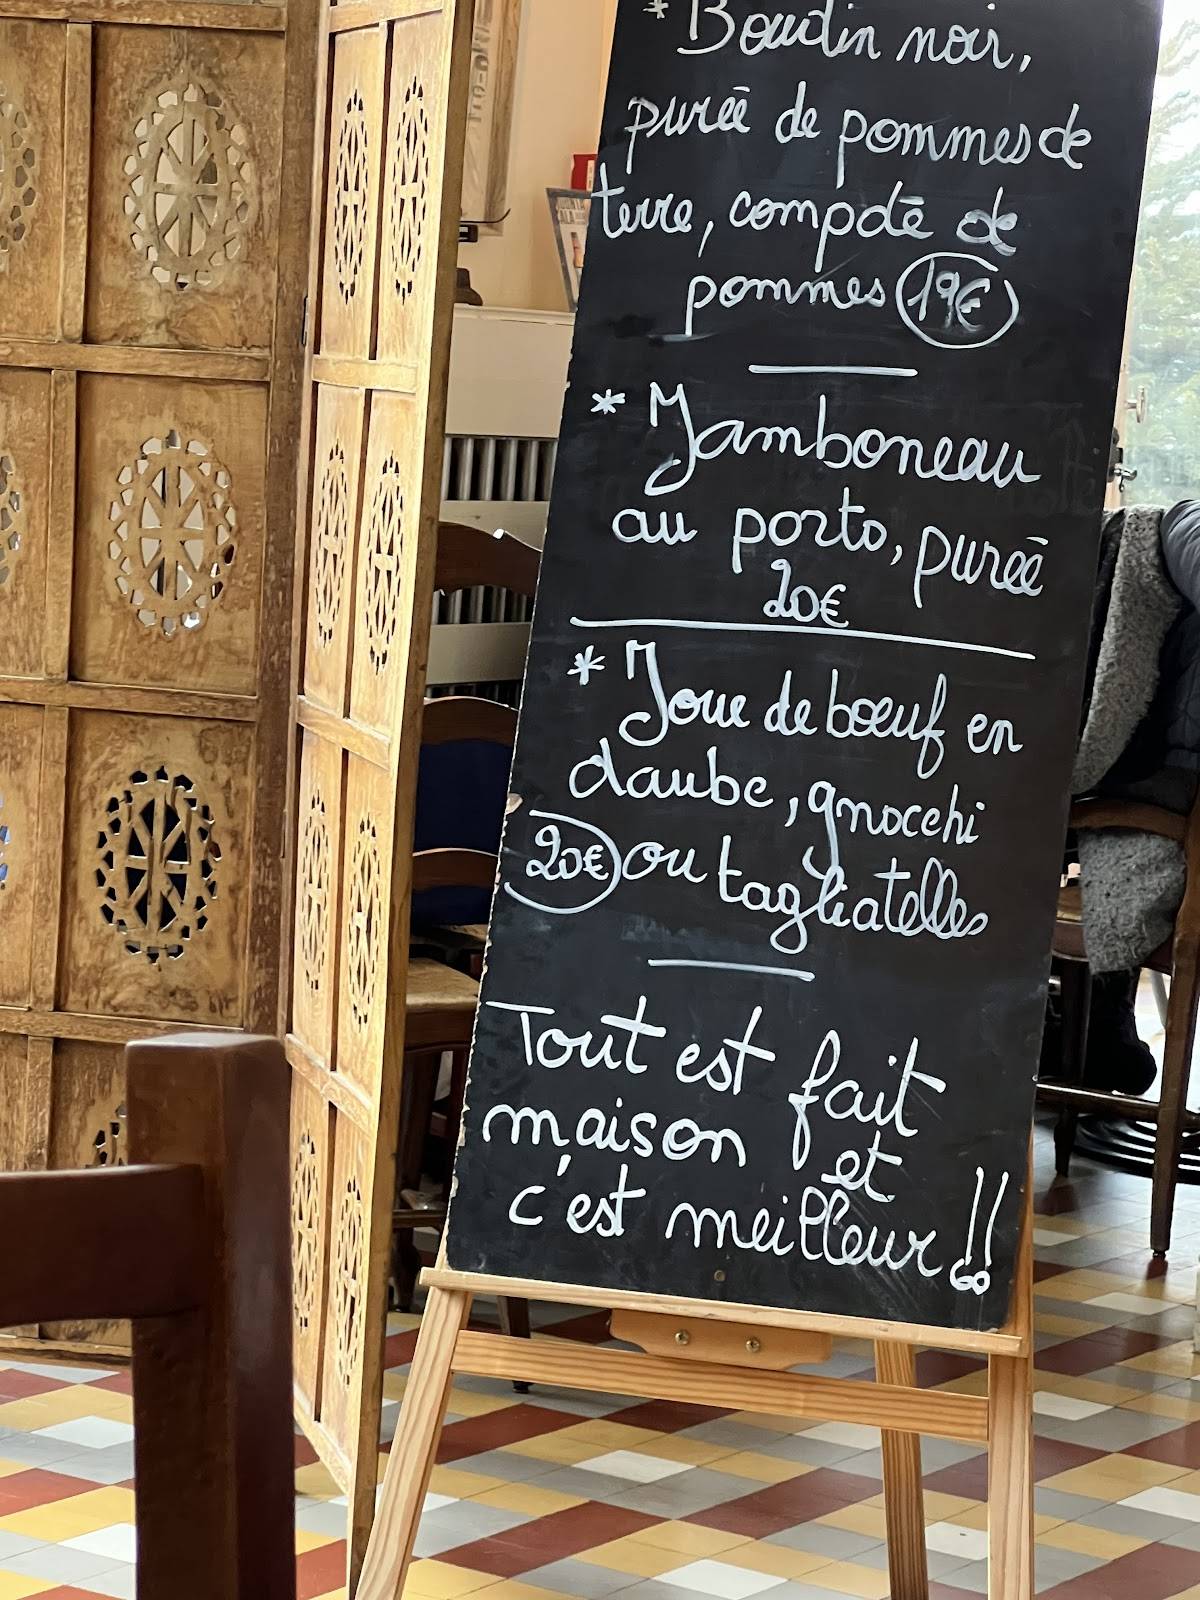 * Boudin noir,
purée de pommes de
terre, compote de
pommes 19€
* Jamboneau
au porto, purée
20€
* Joue de bœuf en
daube, gnocchi
20€ ou tagliatelles
Tout est fait
maison et
c'est meilleur !!